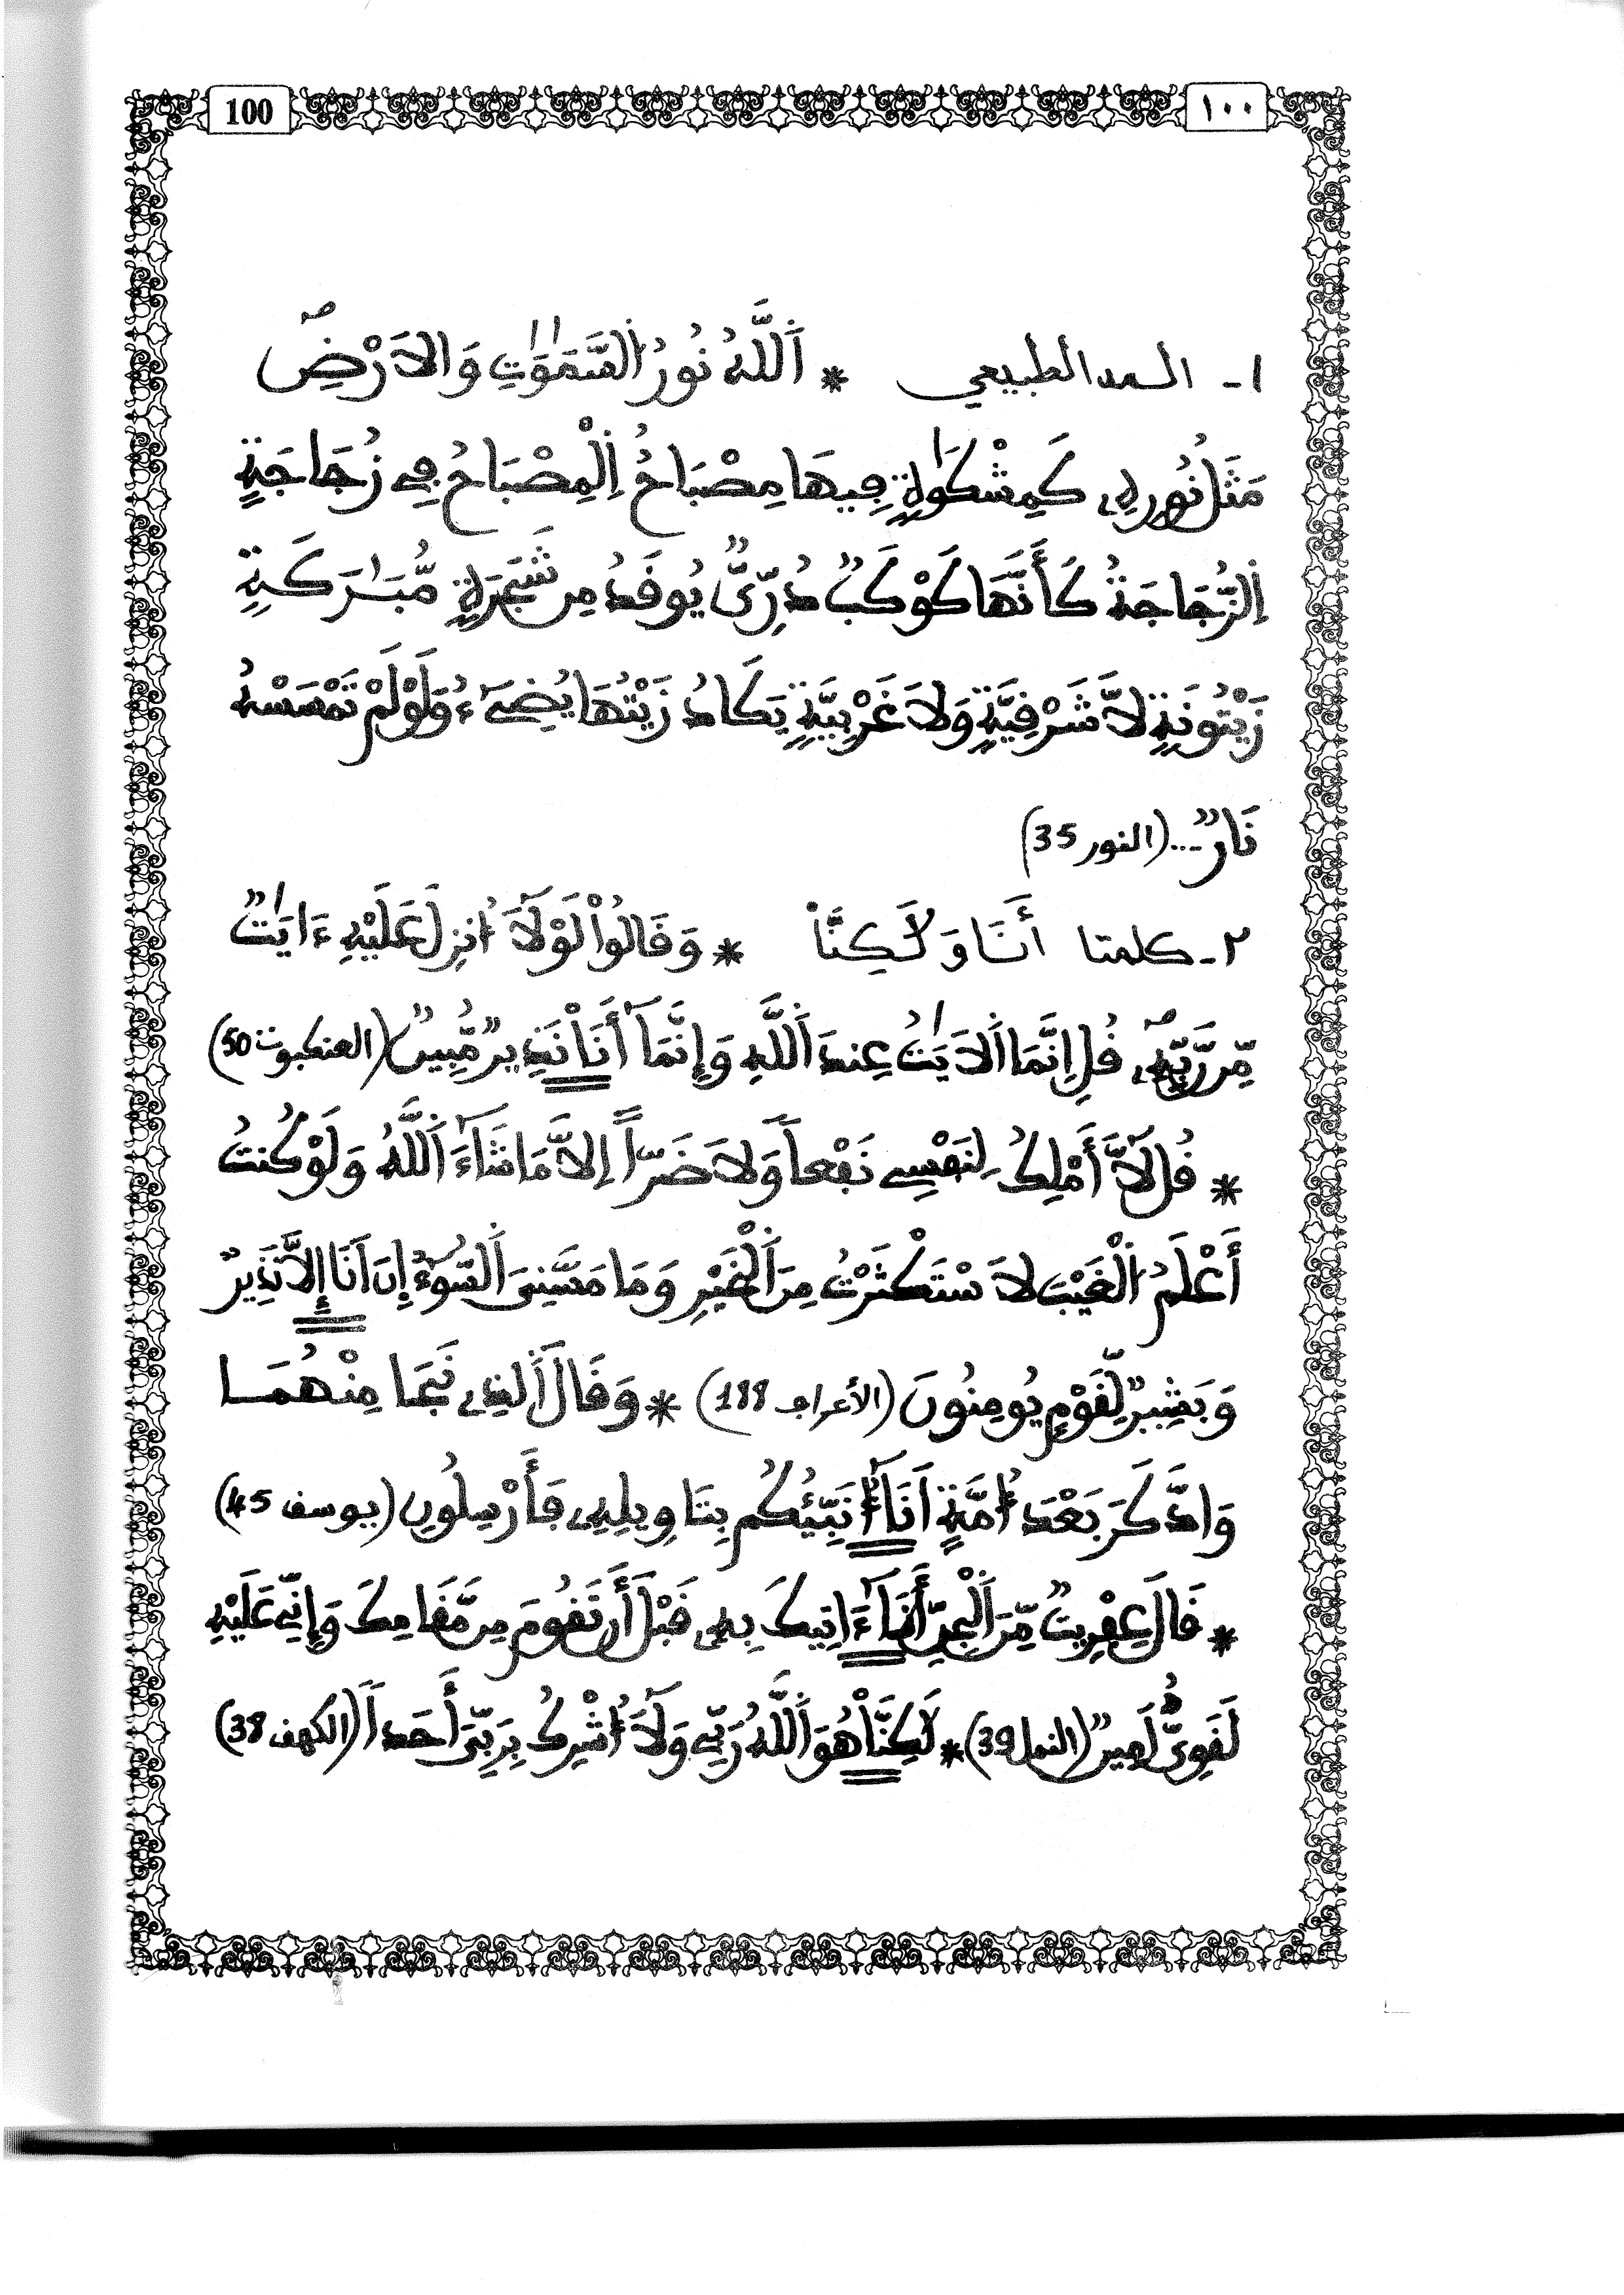 ١٠٠
100
١- المد الطبيعي * اَللَّهُ نُورُ السَّمَٰوَٰتِ وَالاَرْضِۖ
مَثَلُ نُورِهِۦ كَمِشْكَوٰةٖ فِيهَا مِصْبَاحٌ اِلْمِصْبَاحُ فِے زُجَاجَةٍ
اِلزُّجَاجَةُ كَأَنَّهَا كَوْكَبٞ دُرِّىّٞ يُوقَدُ مِن شَجَرَةٖ مُّبَٰرَكَةٖ
زَيْتُونَةٖ لاَّ شَرْقِيَّةٖ وَلاَ غَرْبِيَّةٖ يَكَادُ زَيْتُهَا يُضِےٓءُ وَلَوْ لَمْ تَمْسَسْهُ
نَارٞ... (النور 35)
٢- كلمتا أَنَا وَ لَٰكِنَّا * وَقَالُواْ لَوْلَآ أُنزِلَ عَلَيْهِ ءَايَٰتٞ
مِّن رَّبِّهِۦۖ قُلِ اِنَّمَا اَلاَيَٰتُ عِندَ اَللَّهِ وَإِنَّمَآ أَنَا نَذِيرٞ مُّبِينٌ (العنكبوت 50)
* قُل لَّآ أَمْلِكُ لِنَفْسِے نَفْعاٗ وَلاَ ضَرّاً اِلاَّ مَا شَآءَ اَللَّهُ وَلَوْ كُنتُ
أَعْلَمُ اُلْغَيْبَ لاَسْتَكْثَرْتُ مِنَ اَلْخَيْرِ وَمَا مَسَّنِىَ اَلسُّوٓءُ اِنَ اَنَا إِلاَّ نَذِيرٞ
وَبَشِيرٞ لِّقَوْمٖ يُومِنُونَ (الأعراف 188) * وَقَالَ اَلذِے نَجَا مِنْهُمَا
وَادَّكَرَ بَعْدَ أُمَّةٍ اَنَآ أُنَبِّئُكُم بِتَاوِيلِهِۦ فَأَرْسِلُونِ (يوسف 45)
* قَالَ عِفْرِيتٞ مِّنَ اَلْجِنِّ أَنَآ ءَاتِيكَ بِهِۦ قَبْلَ أَن تَقُومَ مِن مَّقَامِكَ وَإِنِّے عَلَيْهِ
لَقَوِىٌّ اَمِينٞ (النمل 39) * لَّٰكِنَّا هُوَ اَللَّهُ رَبِّے وَلَآ أُشْرِكُ بِرَبِّىَ أَحَداٗ (الكهف 38)